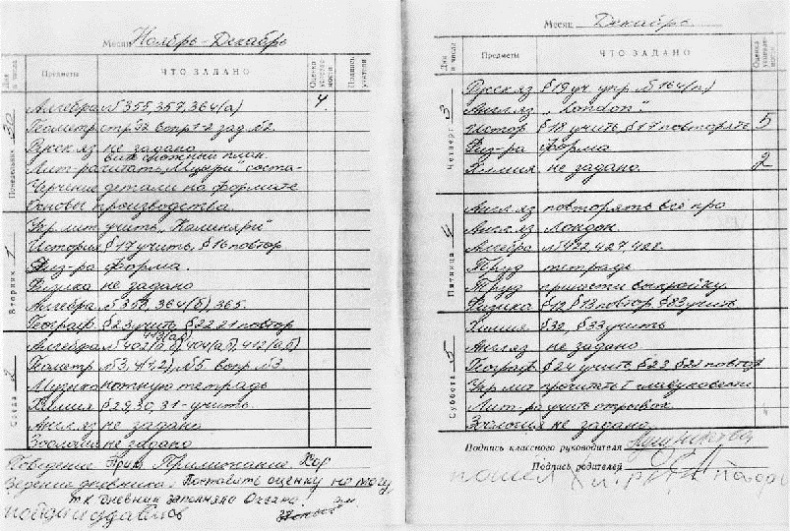 Месяц Ноябрь - Декабрь
Дни и числа Предметы ЧТО ЗАДАНО Оценка Подпись учителя
Понедельник 30
Алгебра № 355, 357, 364(а) 4
Геометр стр 42 впр 1-2 зад №2.
Русск яз не задано
план.
Лит-ра читать "Мцыри" соста-
Черчение детали на формате
Основы производства
Вторник 1
Укр. лит учить "
История § 17 учить, § 16 повтор
Физ-ра форма.
Физика не задано
Алгебра № 358, 364(б) 365.
Географ § 23 учить § 22 21 повтор
Среда 2
Алгебра № 402(а,б), 404(а,б), 412(а,б)
Геометр № 3, 4(1,2) № 5. вопр. № 3
Музыка нотную тетрадь
Химия § 29, 30, 31 - учить.
Англ яз не задано
Зоология не задано
Поведение Прим Примечание. Хор
Ведение дневника: Поставить оценку не могу,
т к дневник заполняла Оксана!
Месяц Декабрь
Дни и числа Предметы ЧТО ЗАДАНО Оценка
Четверг 3
Русск яз § 19 уч. упр. № 164(п)
Англ яз "London".
Истор § 18 учить, § 17 повторять 5
Физ-ра форма
Химия не задано. 2
Пятница 4
Англ яз повторять всё про
Англ яз Лондон.
Алгебра № 422, 427, 428.
Труд тетрадь
Труд принести выкройку.
Физика § 12 § 13 повтор § 33 учить
Суббота 5
Химия § 32, § 33 учить
Англ яз не задано
Географ § 24 учить § 23 § 22 повтор
Укр лит прочитать
Лит-ра учить отрывок.
Зоология не задано
Подпись классного руководителя
Подпись родителей
пошёл